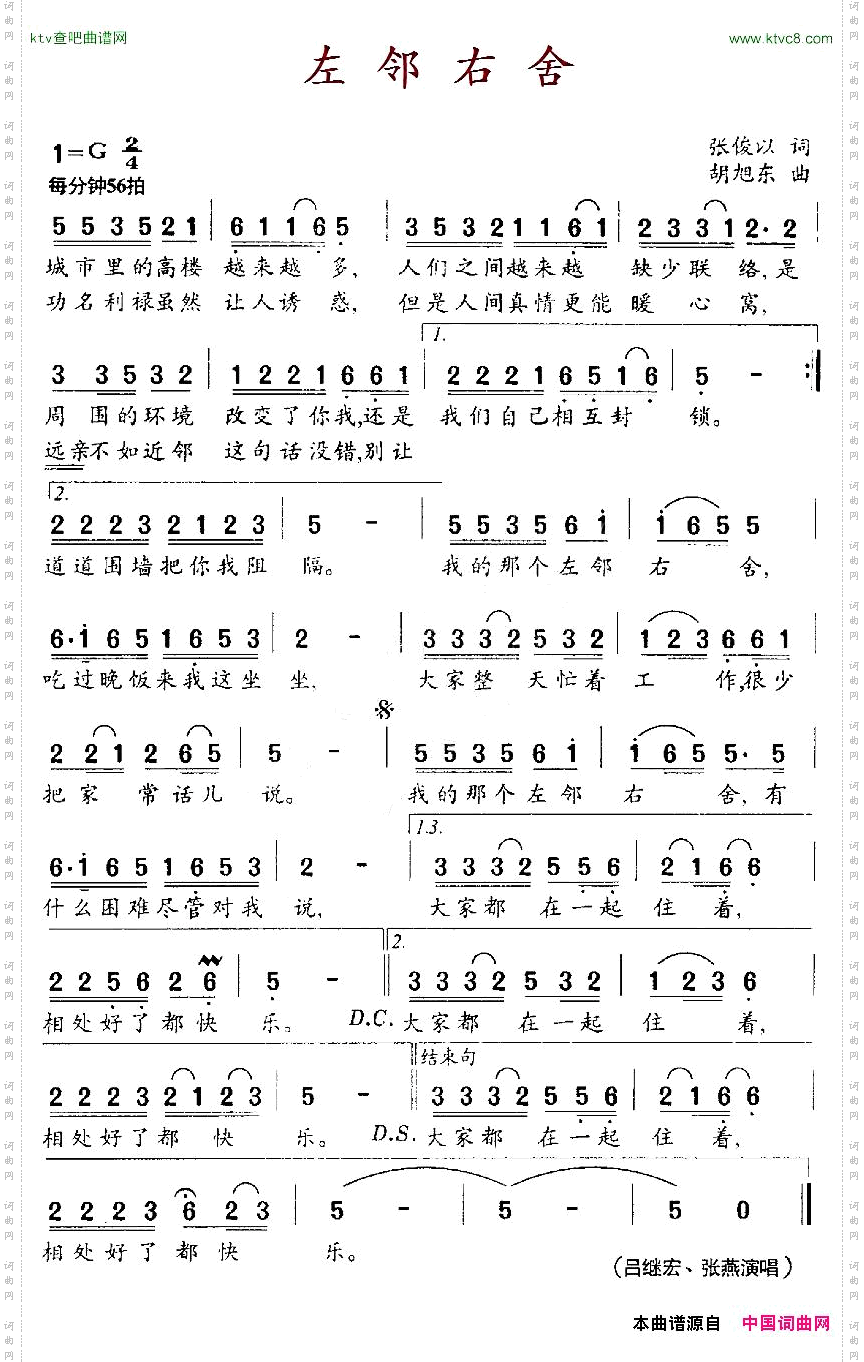 ktv查吧曲谱网
www.ktvc8.com
左邻右舍
1=G 2/4
张俊以 词
每分钟56拍
胡旭东 曲
5 5 3 5 2 1 | 6 1 1 6 5 | 3 5 3 2 1 1 6 1 | 2 3 3 1 2· 2
城市里的高楼 越来越 多, 人们之间越来越 缺少联络,是
功名利禄虽然 让人诱 惑, 但是人间真情更能 暖 心 窝,
1.
3 3 5 3 2 | 1 2 2 1 6 6 1 | 2 2 2 1 6 5 1 6 | 5 - :||
周 围的环境 改变了你我,还是 我们自己相互封 锁。
远亲不如近邻 这句话没错,别让
2.
2 2 2 3 2 1 2 3 | 5 - | 5 5 3 5 6 i | i 6 5 5
道道围墙把你我阻 隔。 我的那个左邻 右 舍,
6·i 6 5 1 6 5 3 | 2 - | 3 3 3 2 5 3 2 | 1 2 3 6 6 1
吃过晚饭来我这坐 坐, 大家整 天忙着 工 作,很少
2 2 1 2 6 5 | 5 - | 5 5 3 5 6 i | i 6 5 5· 5
把家 常话儿 说。 我的那个左邻 右 舍,有
1.3.
6·i 6 5 1 6 5 3 | 2 - | 3 3 3 2 5 5 6 | 2 1 6 6
什么困难尽管对我 说, 大家都 在一起 住 着,
2.
2 2 5 6 2 6 | 5 - || 3 3 3 2 5 3 2 | 1 2 3 6
相处好了都快 乐。 D.C. 大家都 在一起 住 着,
结束句
2 2 2 3 2 1 2 3 | 5 - || 3 3 3 2 5 5 6 | 2 1 6 6
相处好了都 快 乐。 D.S. 大家都 在一起 住 着,
2 2 2 3 6 2 3 | 5 - | 5 - | 5 0 ||
相处好了都 快 乐。
(吕继宏、张燕演唱)
本曲谱源自 中国词曲网